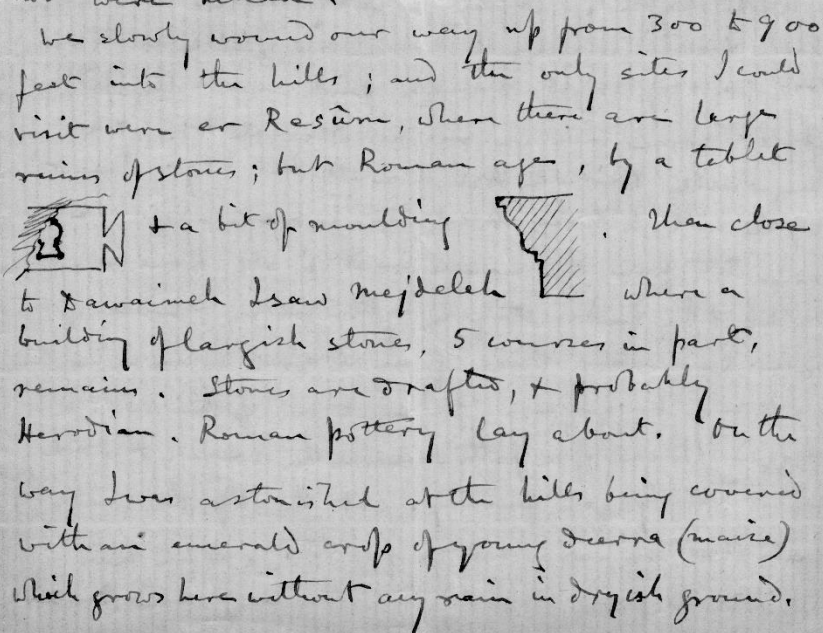 we slowly wound our way up from 300 to 900
feet into the hills ; and the only sites I could
visit were er Resûm, where there are large
ruins of stones ; but Roman age, by a tablet
+ a bit of moulding . Then close
to Dawaimeh I saw Mejdeleh where a
building of largish stones, 5 courses in part,
remains. Stones are drafted, + probably
Herodian. Roman pottery lay about. On the
way I was astonished at the hills being covered
with an emerald crop of young deerra (maize)
which grows here without any rain in dryish ground.